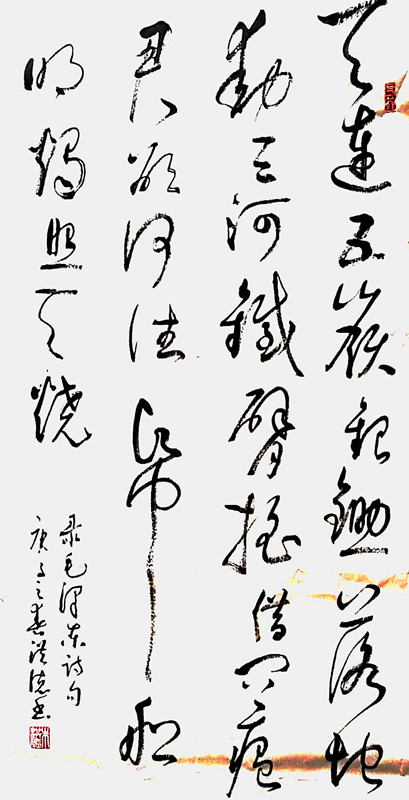 天連五嶺銀鋤落地
動三河鐵臂搖借問瘟
君欲何往帋船
明燭照天燒
录毛澤東詩句
庚子之春洪德書